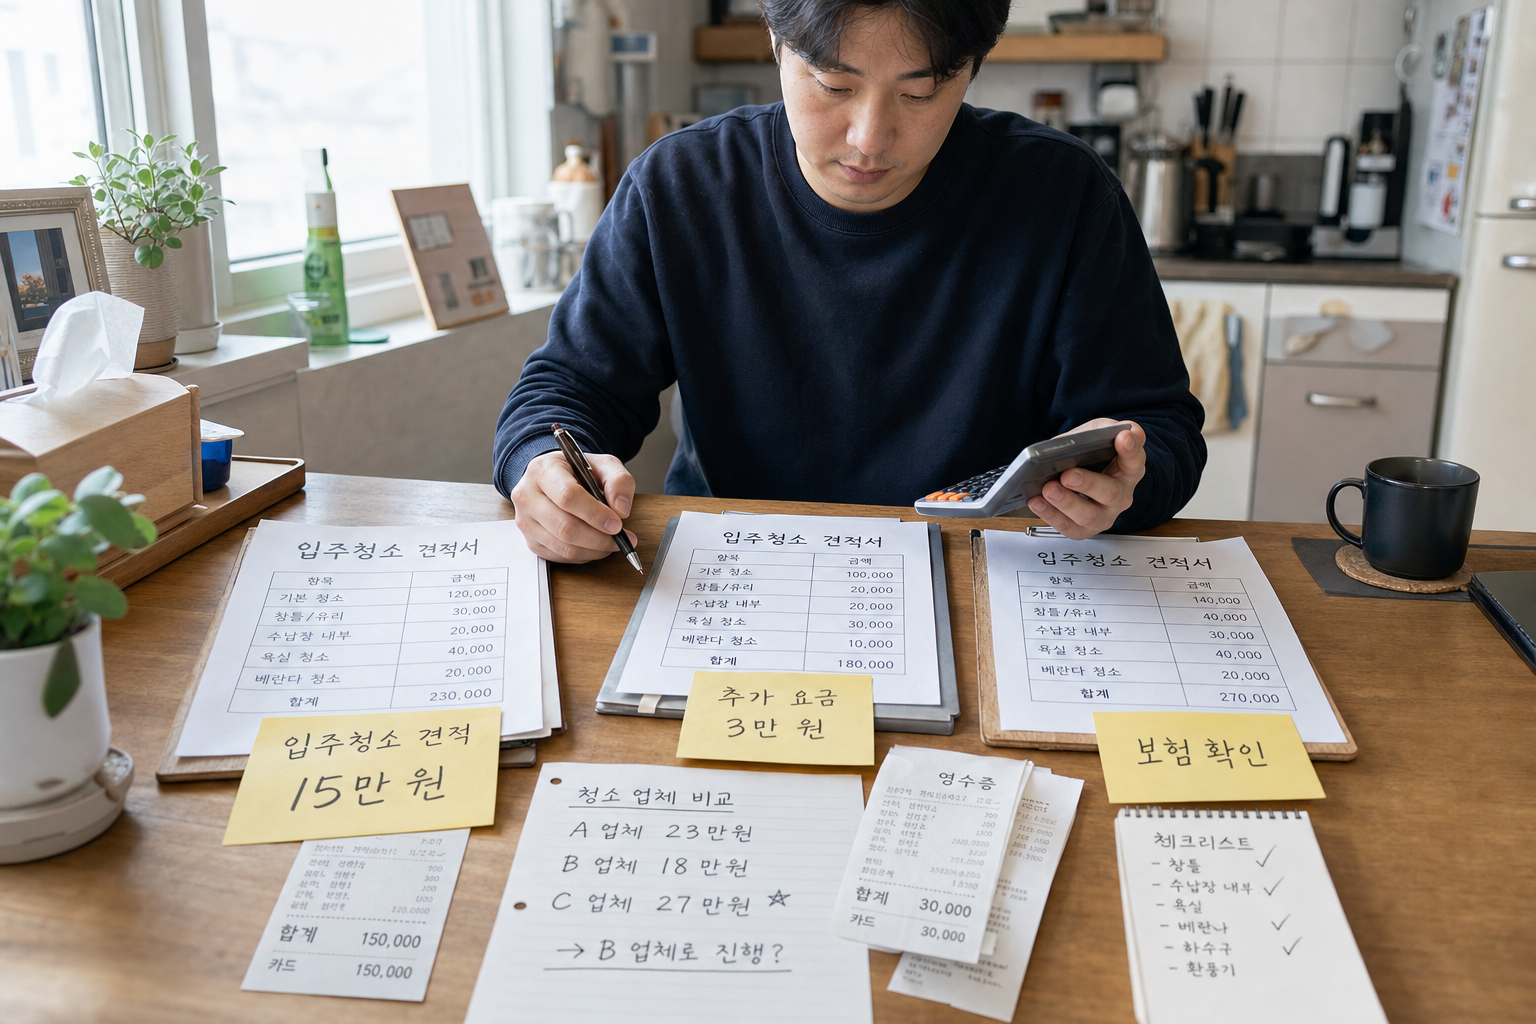 입주청소 견적서
항목 금액
기본 청소 120,000
창틀/유리 30,000
수납장 내부 20,000
욕실 청소 40,000
베란다 청소 20,000
합계 230,000
입주청소 견적서
항목 금액
기본 청소 100,000
창틀/유리 20,000
수납장 내부 20,000
욕실 청소 30,000
베란다 청소 10,000
합계 180,000
입주청소 견적서
항목 금액
기본 청소 140,000
창틀/유리 40,000
수납장 내부 30,000
욕실 청소 40,000
베란다 청소 20,000
합계 270,000
입주청소 견적
15만 원
추가 요금
3만 원
보험 확인
합계 150,000
카드 150,000
청소 업체 비교
A 업체 23만원
B 업체 18만원
C 업체 27만원 ☆
→ B 업체로 진행?
영수증
합계 30,000
카드 30,000
체크리스트 ✓
- 창틀
- 수납장 내부 ✓
- 욕실
- 베란나 ✓
- 하수구 ✓
- 환풍기